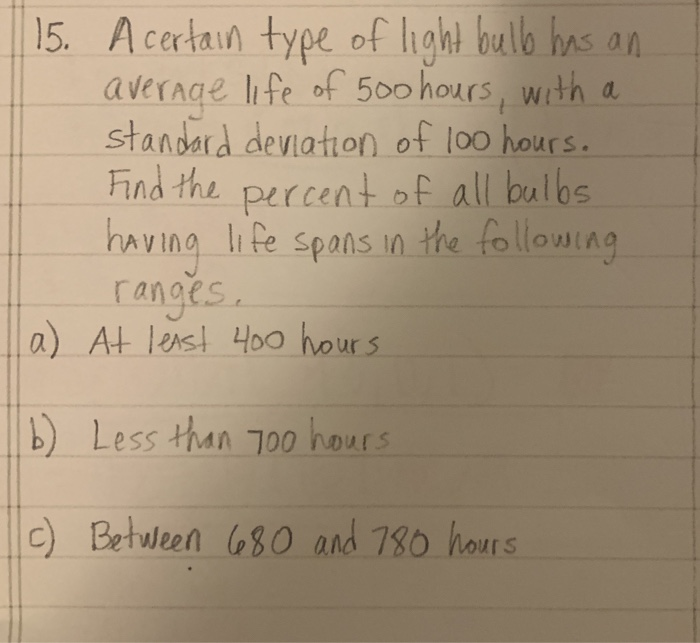 15. A certain type of light bulb has an
average life of 500 hours, with a
standard deviation of 100 hours.
Find the percent of all bulbs
having life spans in the following
ranges.
a) At least 400 hours
b) Less than 700 hours
c) Between 680 and 780 hours